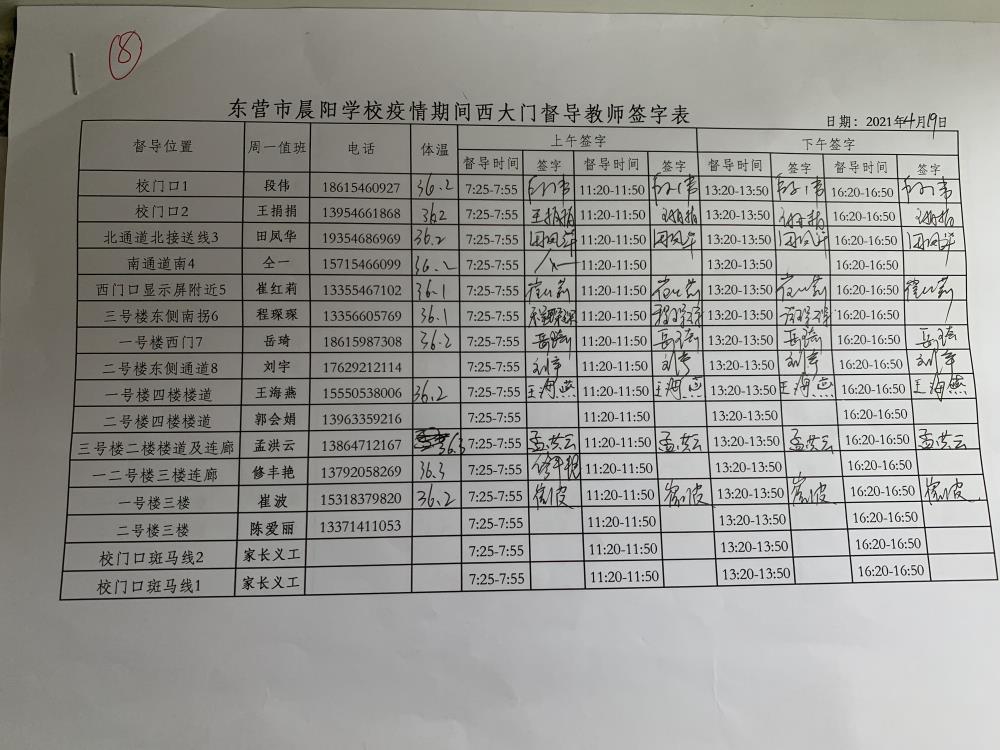 8
东营市晨阳学校疫情期间西大门督导教师签字表
日期：2021年4月19日
督导位置 周一值班 电话 体温 上午签字 下午签字
督导时间 签字 督导时间 签字 督导时间 签字 督导时间 签字
校门口1 段伟 18615460927 36.2 7:25-7:55 11:20-11:50 13:20-13:50 16:20-16:50
校门口2 王捐捐 13954661868 362 7:25-7:55 王捐捐 11:20-11:50 13:20-13:50 16:20-16:50
北通道北接送线3 田凤华 19354686969 36.2 7:25-7:55 田凤华 11:20-11:50 田凤华 13:20-13:50 田凤华 16:20-16:50 田凤华
南通道南4 仝一 15715466099 36.2 7:25-7:55 11:20-11:50 13:20-13:50 16:20-16:50
西门口显示屏附近5 崔红莉 13355467102 36.1 7:25-7:55 崔红莉 11:20-11:50 崔红莉 13:20-13:50 崔红莉 16:20-16:50 崔红莉
三号楼东侧南拐6 程琛琛 13356605769 36.1 7:25-7:55 11:20-11:50 程琛琛 13:20-13:50 程琛琛 16:20-16:50
一号楼西门7 岳琦 18615987308 36.2 7:25-7:55 岳琦 11:20-11:50 岳琦 13:20-13:50 岳琦 16:20-16:50 岳琦
二号楼东侧通道8 刘宇 17629212114 7:25-7:55 刘宇 11:20-11:50 刘宇 13:20-13:50 刘宇 16:20-16:50 刘宇
一号楼四楼楼道 王海燕 15550538006 36.2 7:25-7:55 王海燕 11:20-11:50 王海燕 13:20-13:50 王海燕 16:20-16:50 王海燕
二号楼四楼楼道 郭会娟 13963359216 7:25-7:55 11:20-11:50 13:20-13:50 16:20-16:50
三号楼二楼楼道及连廊 孟洪云 13864712167 36.3 7:25-7:55 孟洪云 11:20-11:50 孟洪云 13:20-13:50 孟洪云 16:20-16:50 孟洪云
一二号楼三楼连廊 修丰艳 13792058269 36.3 7:25-7:55 修丰艳 11:20-11:50 13:20-13:50 16:20-16:50
一号楼三楼 崔波 15318379820 36.2 7:25-7:55 崔波 11:20-11:50 崔波 13:20-13:50 崔波 16:20-16:50 崔波
二号楼三楼 陈爱丽 13371411053 7:25-7:55 11:20-11:50 13:20-13:50 16:20-16:50
校门口斑马线2 家长义工 7:25-7:55 11:20-11:50 13:20-13:50 16:20-16:50
校门口斑马线1 家长义工 7:25-7:55 11:20-11:50 13:20-13:50 16:20-16:50